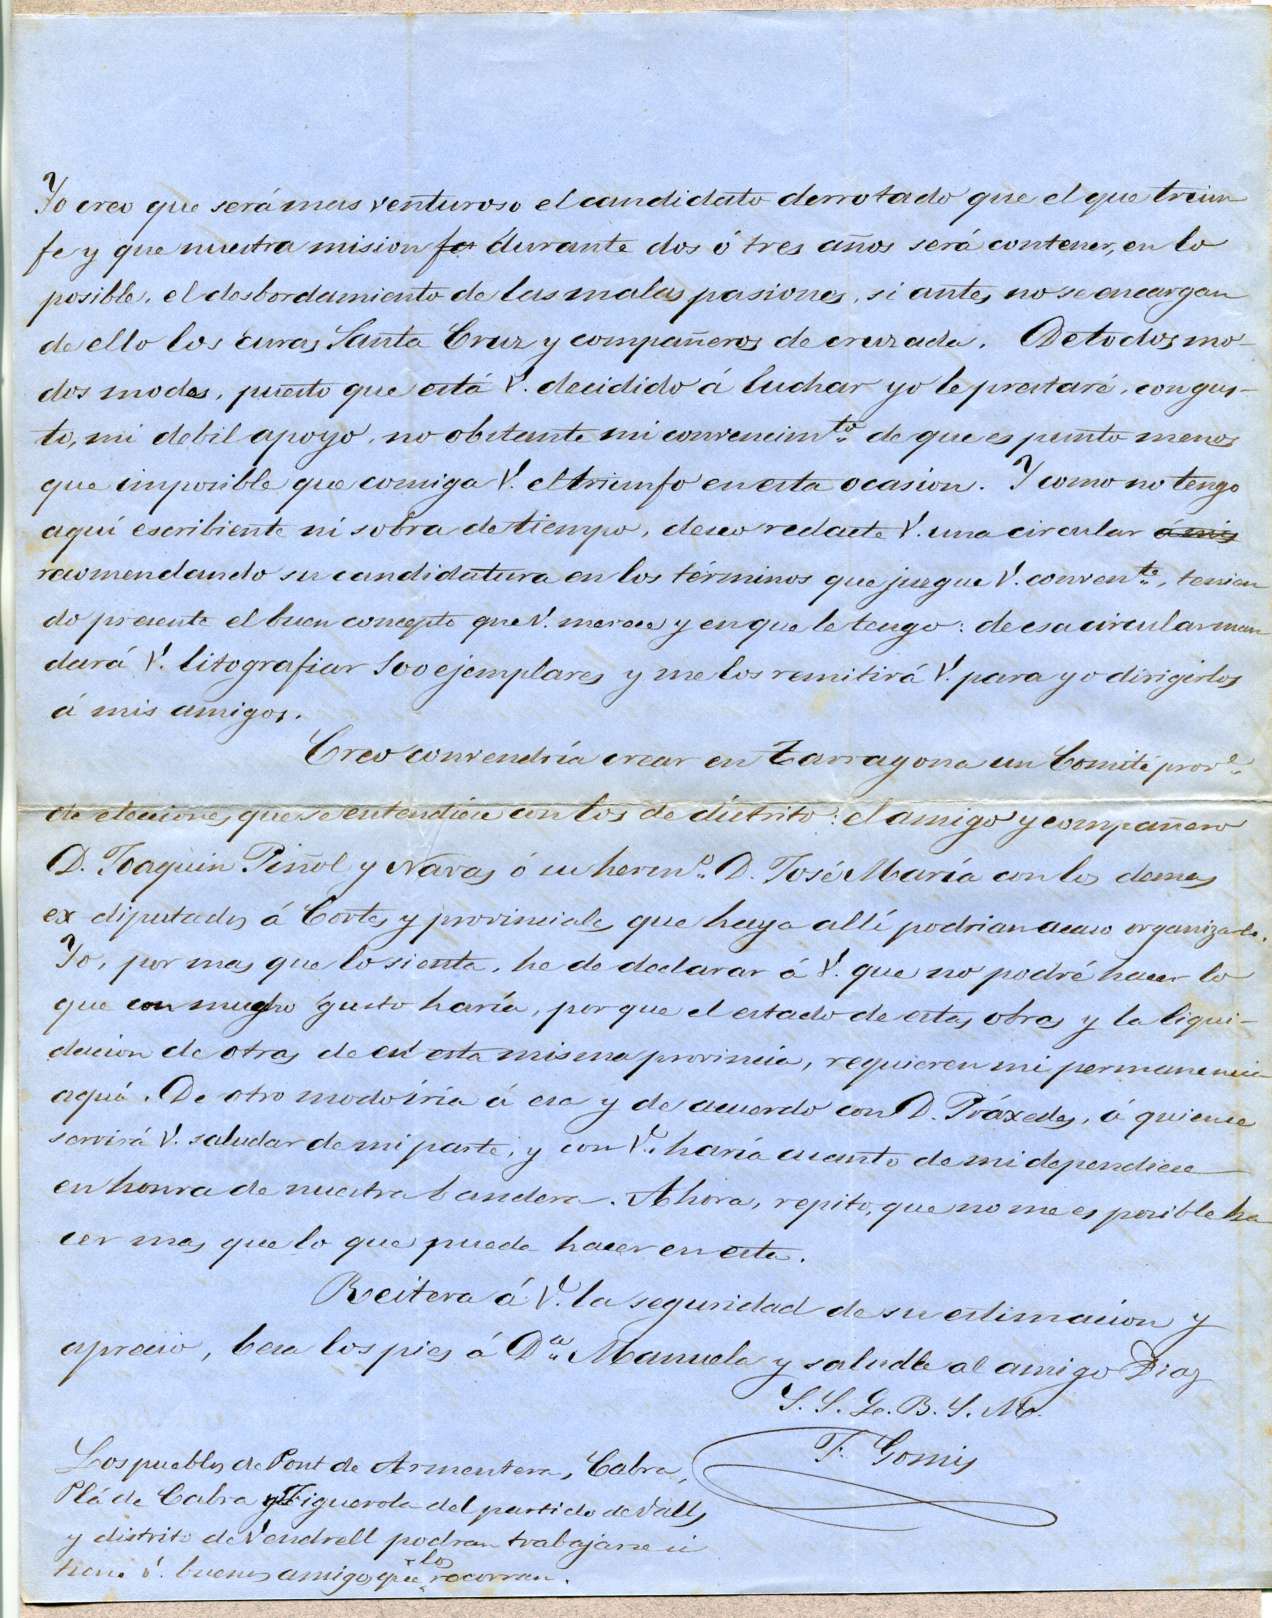 Yo creo que será mas venturoso el candidato derrotado que el que triun
fe y que nuestra mision fa durante dos ó tres años será contener, en lo
posible, el desbordamiento de las malas pasiones, si antes no se encargan
de ello los curas Santa Cruz y compañeros de cruzada. De todos mo-
dos modos, puesto que está V. decidido á luchar yo le prestaré, con gus-
to, mi debil apoyo, no obstante mi convencim.to de que es punto menos
que imposible que consiga V. el triunfo en esta ocasion. Y como no tengo
aquí escribiente ni sobra de tiempo, deseo redacte V. una circular á mis
recomendando su candidatura en los términos que juzgue V. conven.te, tenien
do presente el buen concepto que V. merece y en que le tengo: de esa circular man
dará V. litografiar 500 ejemplares y me los remitirá V. para yo dirigirlos
á mis amigos.
Creo convendría crear en Tarragona un Comité prov.l
de elecciones que se entendiese con los de distrito: el amigo y compañero
D. Joaquin Piñol y Navas ó su herm.o D. José María con los demas
ex diputados á Cortes y provinciales que haya allí podrian acaso organizarlo.
Yo, por mas que lo sienta, he de declarar á V. que no podré hacer lo
que con mucho gusto haría, porque el estado de estas obras y la liqui-
dacion de otras de en esta misma provincia, requieren mi permanencia
aquí. De otro modo iría á esa y de acuerdo con D. Práxedes, á quien se
servirá V. saludar de mi parte, y con V. haría cuanto de mi dependiese
en honra de nuestra bandera. Ahora, repito, que no me es posible ha
cer mas que lo que pueda hacer en esta.
Reitera á V. la seguridad de su estimacion y
aprecio, besa los pies á D.a Manuela y saluda al amigo Diaz
S. S. Q. B. S. M.
F. Gomis
Los pueblos de Pont de Armentera, Cabra,
Plá de Cabra y Figuerola del partido de Valls
y distrito de Vendrell podran trabajarse si
tiene V. buenos amigos que los recorran.